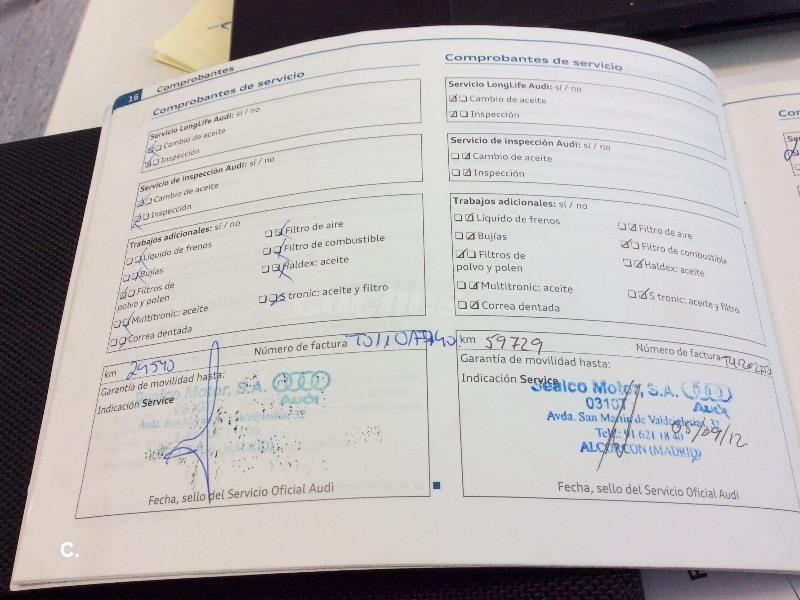 16 Comprobantes
Comprobantes de servicio
Servicio LongLife Audi: sí / no
Cambio de aceite
Inspección
Servicio de inspección Audi: sí / no
Cambio de aceite
Inspección
Trabajos adicionales: sí / no
Líquido de frenos
Bujías
Filtros de
polvo y polen
Multitronic: aceite
Correa dentada
Filtro de aire
Filtro de combustible
Haldex: aceite
S tronic: aceite y filtro
km 29540 Número de factura
Garantía de movilidad hasta:
Indicación Service
Motor, S.A.
Audi
Avda. San Martín de Valdeiglesias, 32
Fecha, sello del Servicio Oficial Audi
Comprobantes de servicio
Servicio LongLife Audi: sí / no
Cambio de aceite
Inspección
Servicio de inspección Audi: sí / no
Cambio de aceite
Inspección
Trabajos adicionales: sí / no
Líquido de frenos
Bujías
Filtros de
polvo y polen
Multitronic: aceite
Correa dentada
Filtro de aire
Filtro de combustible
Haldex: aceite
S tronic: aceite y filtro
km 59729 Número de factura
Garantía de movilidad hasta:
Indicación Service
Sealco Motor, S.A.
03107 Audi
Avda. San Martín de Valdeiglesias, 32
Telf.: 91 621 18 40
ALCORCON (MADRID)
05/09/12
Fecha, sello del Servicio Oficial Audi
C.